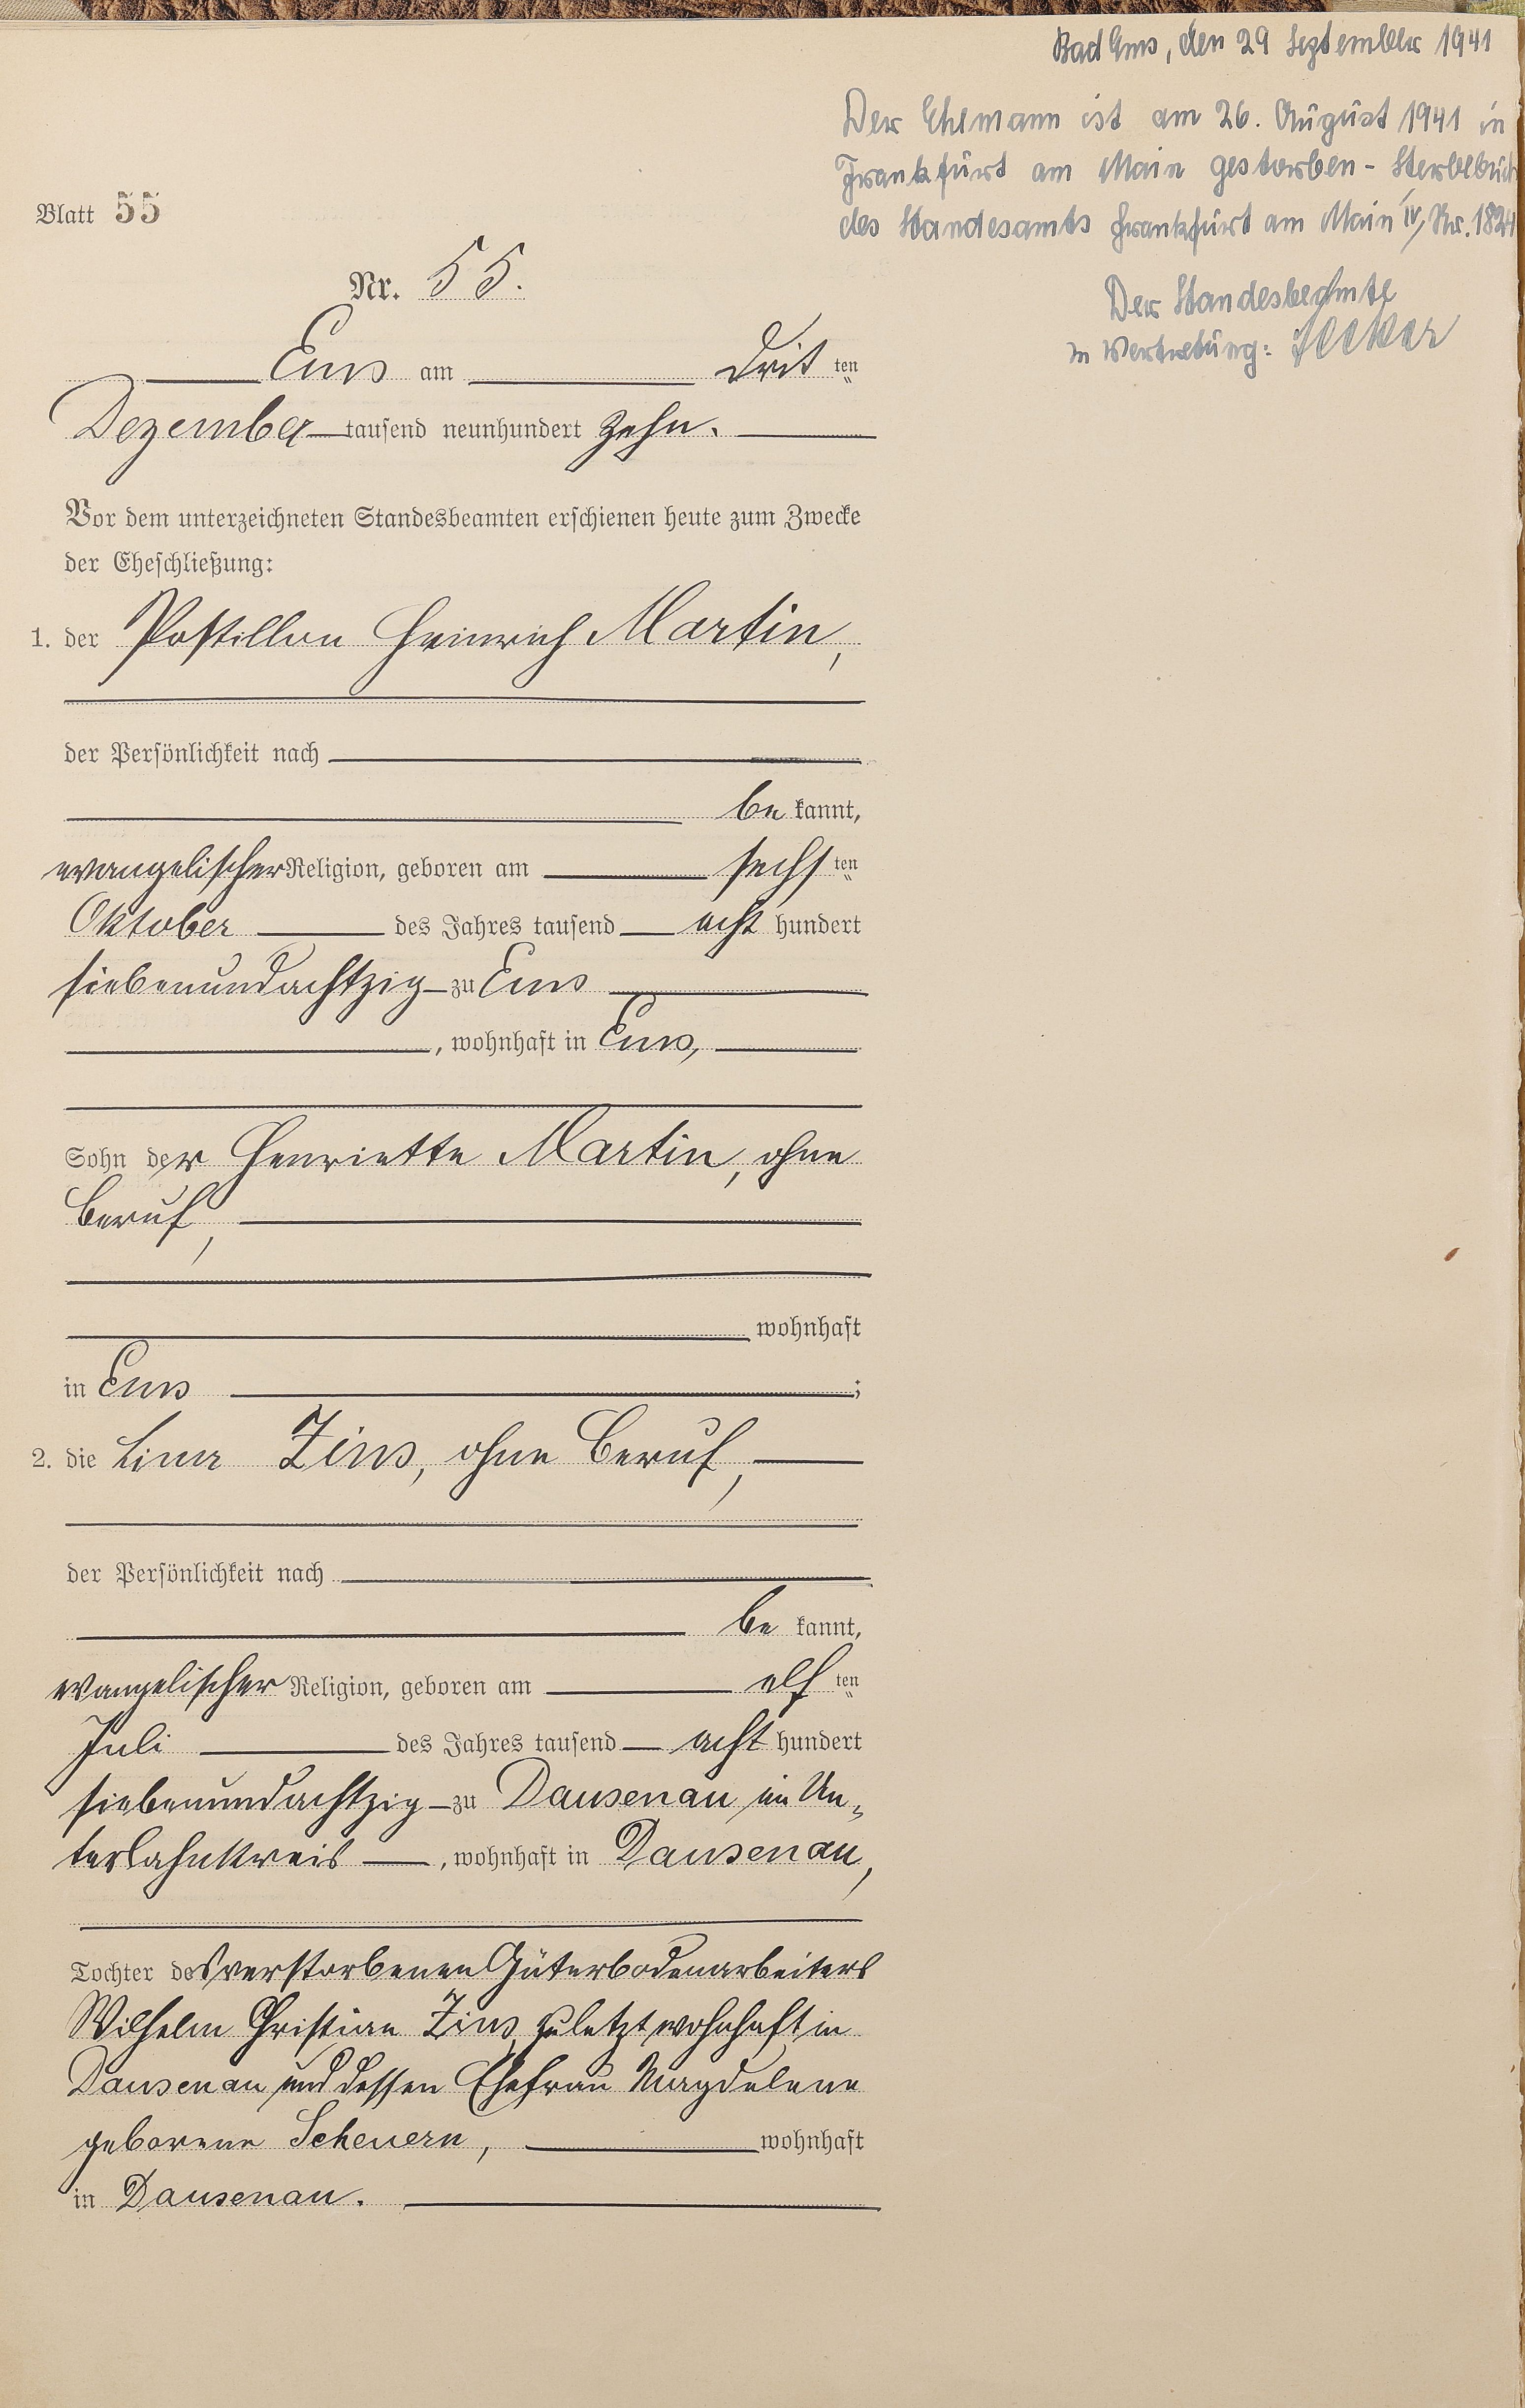 Bad Ems, den 29 September 1941
Der Ehemann ist am 26. August 1941 in
Frankfurt am Main gestorben - Sterbebuch
des Standesamts Frankfurt am Main IV, Nr. 1824
Der Standesbeamte
in Vertretung:
Blatt 55
Nr. 55.
Ems am Drit ten
Dezember tausend neunhundert zehn.
Vor dem unterzeichneten Standesbeamten erschienen heute zum Zwecke
der Eheschließung:
1. der Postillon Heinrich Martin,
der Persönlichkeit nach
be kannt,
evangelischer Religion, geboren am sechs ten
Oktober des Jahres tausend acht hundert
siebenundachtzig zu Ems
, wohnhaft in Ems,
Sohn der Henriette Martin, ohne
Beruf,
wohnhaft
in Ems ;
2. die Lina Zins, ohne Beruf,
der Persönlichkeit nach
be kannt,
evangelischer Religion, geboren am elf ten
Juli des Jahres tausend acht hundert
siebenundachtzig zu Dausenau im Un-
terlahnkreis , wohnhaft in Dausenau,
Tochter des verstorbenen Güterbodenarbeiters
Wilhelm Christian Zins, zuletzt wohnhaft in
Dausenau und dessen Ehefrau Magdalene
geborene Scheuern, wohnhaft
in Dausenau.